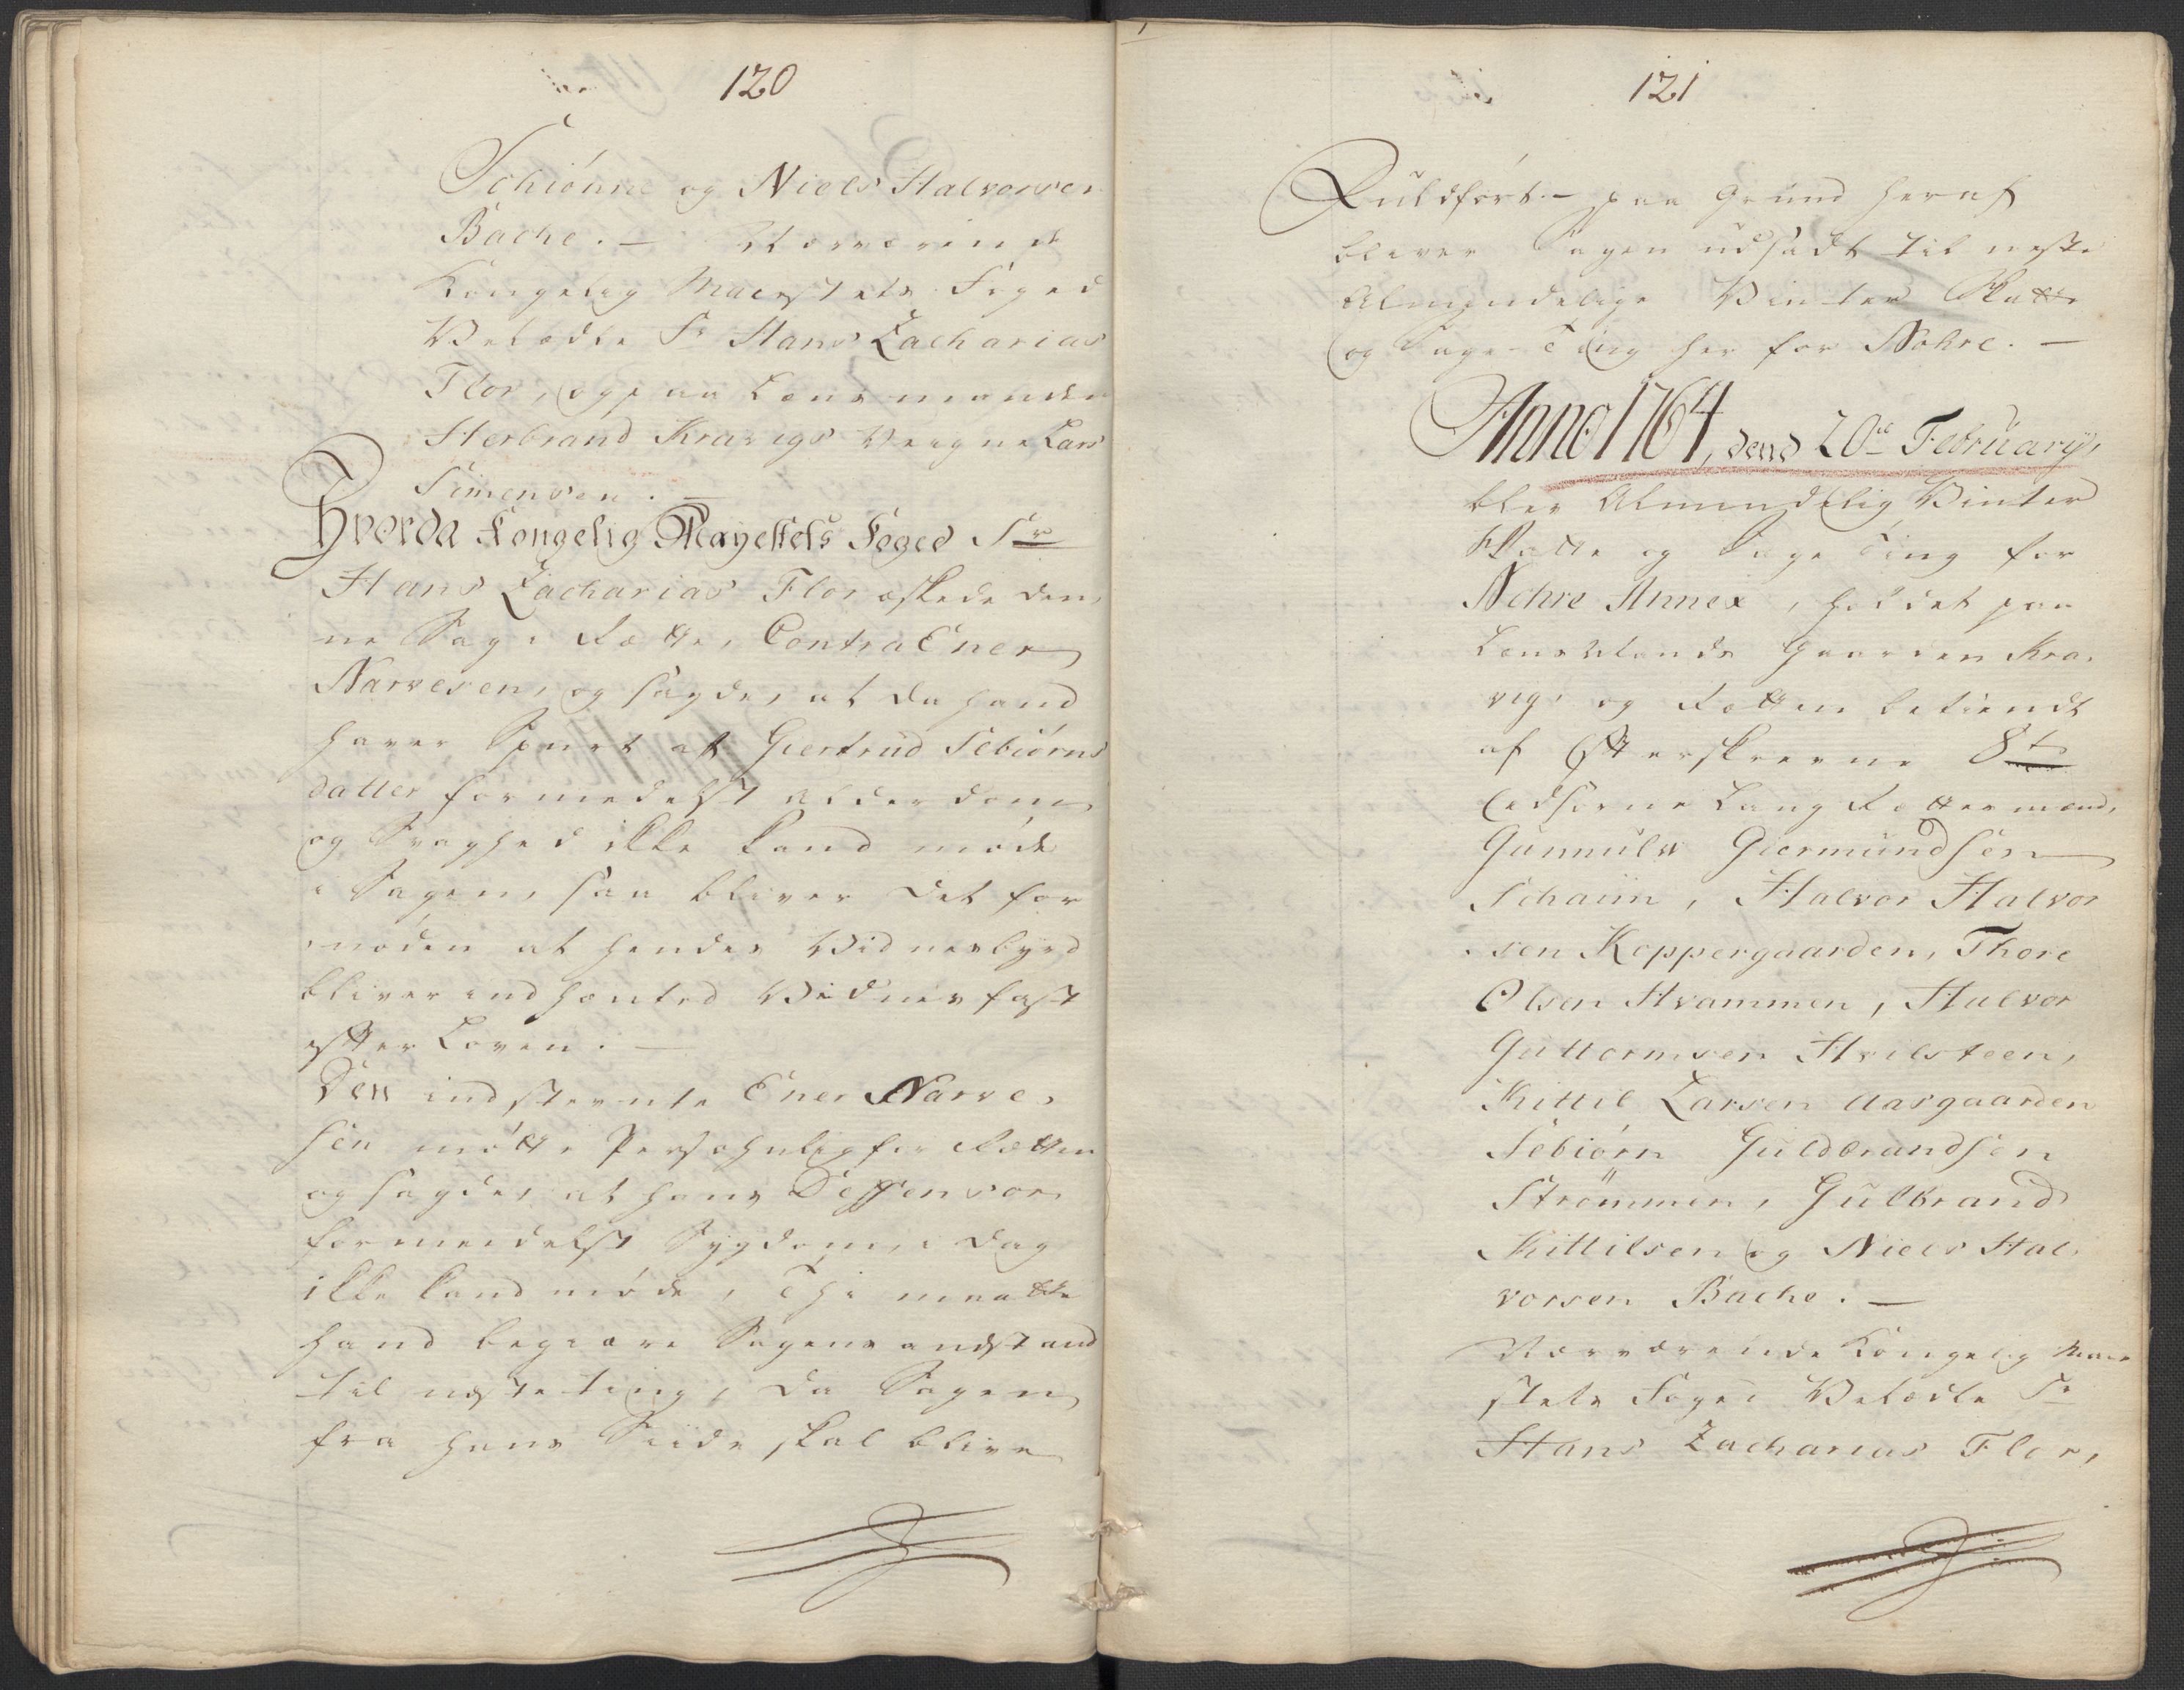 120
Schiönne og Niels Halvorsen
Bache. — Nærværende
Kongelig Maiestets Foged
Velædle Sr Hans Zacharias
Flor, og paa Lensmanden
Herbrand Kravigs Vegne Lars
Simensen. —
Hvorda Kongelig Mayestets Foged Sr
Hans Zacharias Flor æskede den,
ne Sag i Rætte, Contra Ener
Narvesen, og sagde, at da hand
haver Spurt at Giertrud Sebiørns
datter formedelst Alderdom
og Svaghed ikke kand møde
i Sagen, saa bliver det for
nøden at hendes Vidnesbyrd
bliver indhented Vidnes fast
efter Loven. —
Den indstevnte Ener Narve,
sen møtte Persohnlig for Rætten
og sagde, at hans Deffensor
formeidelst Sygdom i dag
ikke kand møde, Thi maatte
hand begiære Sagens andstand
til neste ting, da Sagen
fra hans Siide skal blive
121
Fuldført — paa Grund heraf
bliver Sagen udsadt til neste
Almindelige Vinter Skatte
og Sage-Ting her for Nohre. —
Anno 1764, dend 20de February,
blev Almindelig Vinter
Skatte og Sage Ting for
Nohre Annex, holdet paa
Lensmands Gaarden Kra,
vig, og Rætten betiendt
af Efterskrevne 8te
Eedsorne Laug Rættesmænd,
Gunnulv Giermundsen
Schaim, Halvor Halvor
sen Koppergaarden, Thore
Olsen Hvammen, Halvor
Guttormsen Hvilsteen,
Kittil Larsen Aasgaarden
Sebiørn Guldbrandsen
Strømmen, Gulbrand
Kittilsen og Niels Hal,
vorsen Bache. —
Nærværende Kongelig Maie
stets Foged Velædle Sr
Hans Zacharias Flor,